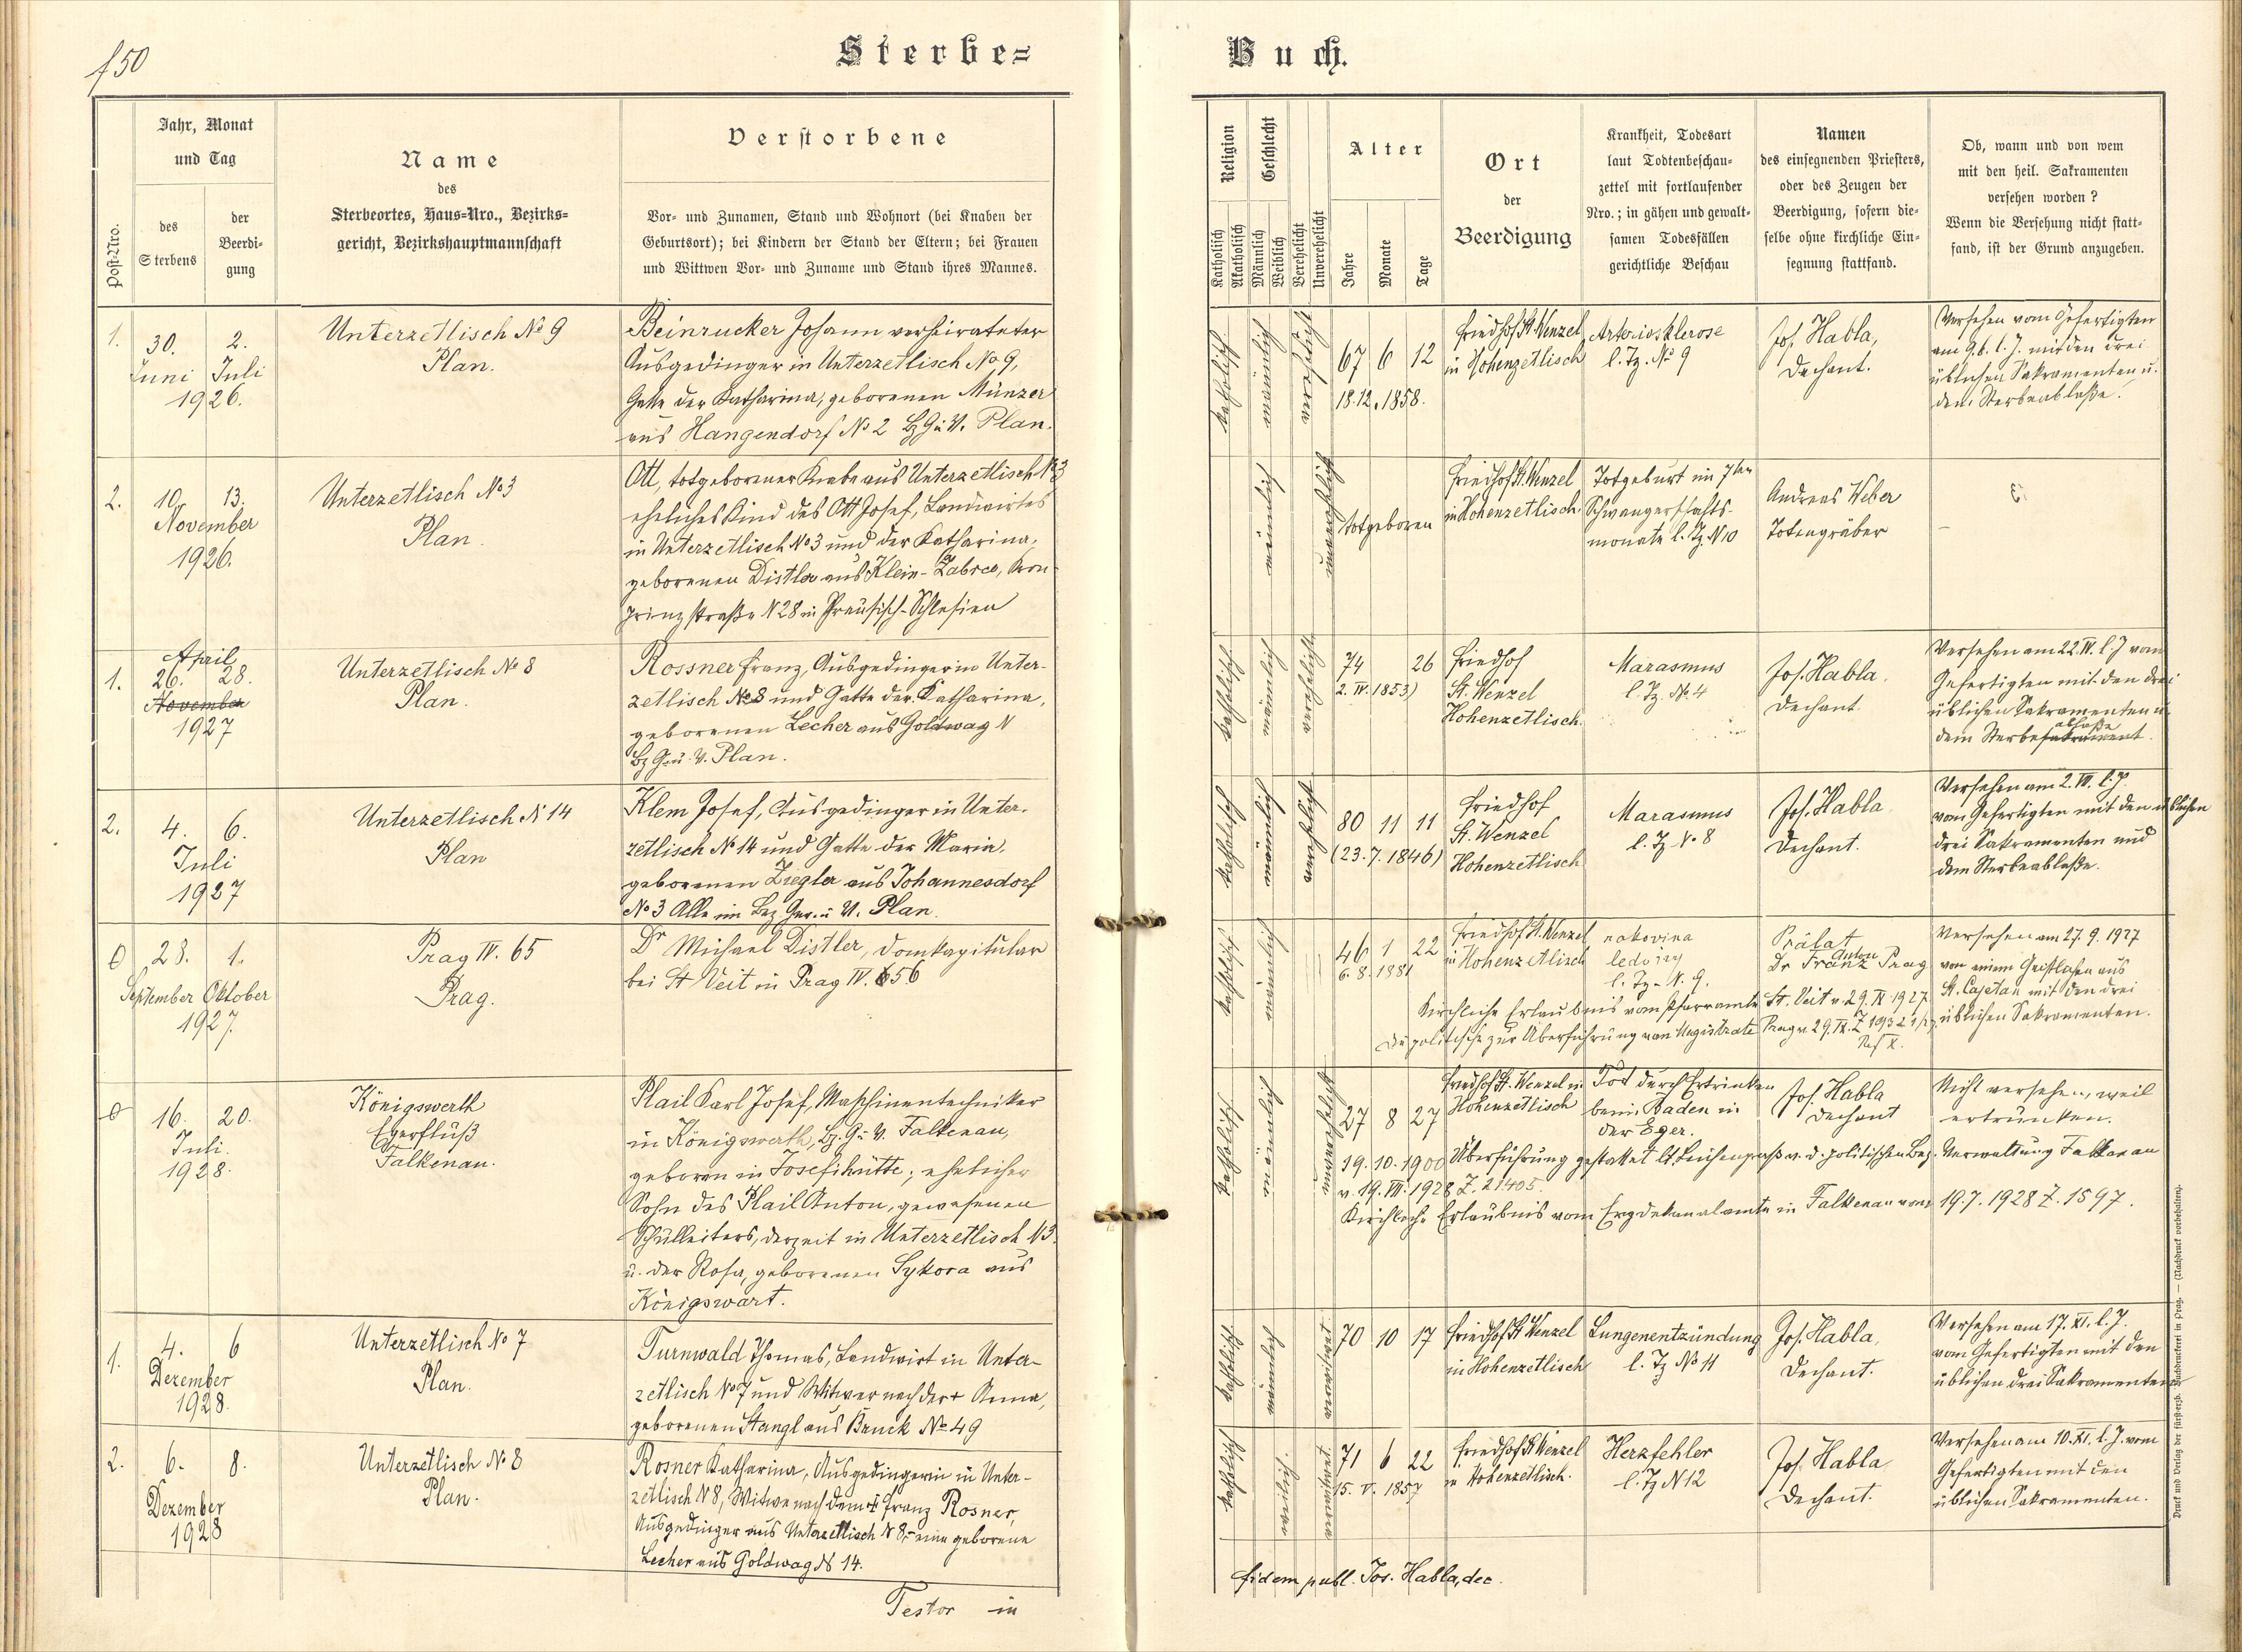 f 50
Sterbe=
Buch.
Post-Nro.
Jahr, Monat
und Tag
des
Sterbens
der
Beerdi-
gung
Name
des
Sterbeortes, Haus=Nro., Bezirks=
gericht, Bezirkshauptmannschaft
Verstorbene
Vor- und Zunamen, Stand und Wohnort (bei Knaben der
Geburtsort); bei Kindern der Stand der Eltern; bei Frauen
und Wittwen Vor- und Zuname und Stand ihres Mannes.
Religion
Katholisch
Akatholisch
Geschlecht
Männlich
Weiblich
Verehelicht
Unverehelicht
Alter
Jahre
Monate
Tage
Ort
der
Beerdigung
Krankheit, Todesart
laut Todtenbeschau-
zettel mit fortlaufender
Nro.; in gähen und gewalt-
samen Todesfällen
gerichtliche Beschau
Namen
des einsegnenden Priesters,
oder des Zeugen der
Beerdigung, sofern die-
selbe ohne kirchliche Ein-
segnung stattfand.
Ob, wann und von wem
mit den heil. Sakramenten
versehen worden?
Wenn die Versehung nicht statt-
fand, ist der Grund anzugeben.
1.
30. 2.
Juni Juli
1926.
Unterzetlisch No 9
Plan.
Beinrucker Johann verheirateter
Ausgedinger in Unterzetlisch No 9,
Gatte der Katharina, geborenen Münzer
aus Hangendorf No 2 Bz G. u. V. Plan.
katholisch
männlich
verehelicht
67 6 12
18.12.1858.
Friedhof St. Wenzel
in Hohenzetlisch
Arteriosklerose
l. Tz. No 9
Jos. Habla,
Dechant.
Versehen vom Gefertigten
am 9.6. l. J. mit den drei
üblichen Sakramenten u.
dem Sterbeablaße.
2.
10. 13.
November
1926.
Unterzetlisch No 3
Plan.
Ott, totgeborener Knabe aus Unterzetlisch No 3
eheliches Kind des Ott Josef, Landwirtes
in Unterzetlisch No 3 und der Katharina,
geborenen Distler aus Klein-Zabrce, Kron-
prinzstraße N 28 in Preußisch-Schlesien
männlich
unverehelicht
totgeboren
Friedhof St. Wenzel
in Hohenzetlisch.
Totgeburt im 7ten
Schwangerschafts-
monate l. Tz. N 10
Andreas Weber
Totengräber
–
1.
April
26. 28.
November
1927
Unterzetlisch No 8
Plan.
Rossner Franz, Ausgedinger in Unter-
zetlisch No 8 und Gatte der Katharina,
geborenen Lecher aus Goldwag N
Bz G. u. V. Plan.
katholisch
männlich
verehelicht
74 26
2. IV. 1853)
Friedhof
St. Wenzel
Hohenzetlisch.
Marasmus
l. Tz. No. 4
Jos. Habla.
Dechant.
Versehen am 22. IV. l. J. vom
Gefertigten mit den drei
üblichen Sakramenten u.
ablaße
dem Sterbesakrament.
2.
4. 6.
Juli
1927
Unterzetlisch N 14
Plan
Klem Josef, Ausgedinger in Unter-
zetlisch No 14 und Gatte der Maria,
geborenen Ziegler aus Johannesdorf
No 3 Alle im Bez. Ger. u. V. Plan.
katholisch
männlich
verehelicht
80 11 11
(23.7.1846)
Friedhof
St. Wenzel
Hohenzetlisch
Marasmus
l. Tz N. 8
Jos. Habla
Dechant.
Versehen am 2. VII. l. J.
vom Gefertigten mit den üblichen
drei Sakramenten und
dem Sterbeablaße.
0
28. 1.
September Oktober
1927.
Prag IV. 65
Prag.
Dr Michael Distler, Domkapitular
bei St Veit in Prag IV. 656
katholisch
männlich
46 1 22
6. 8. 1881
Friedhof St. Wenzel
in Hohenzetlisch
nakovina
ledviny
l. Tz. N. 9.
Prälat
Anton
Dr Franz Prag
Versehen am 27. 9. 1927
von einem Geistlichen aus
St. Cajetan mit den drei
üblichen Sakramenten.
Kirchliche Erlaubnis vom Pfarramte St. Veit v. 29. IX. 1927
Die politische zur Überführung vom Magistrate Prag v. 29. IX. Z 19321/27.
Ref X.
0
16. 20.
Juli.
1928.
Königswerth
Egerfluß
Falkenau.
Plail Karl Josef, Maschinentechniker
in Königswerth, Bz. G. u. V. Falkenau,
geboren in Josefihütte; ehelicher
Sohn des Plail Anton, gewesenen
Schulleiters, derzeit in Unterzetlisch N 3.
u. der Rosa, geborenen Sykora aus
Königswart.
katholisch
männlich
unverehelicht
27 8 27
Friedhof St. Wenzel in
Hohenzetlisch
Tod durch Ertrinken
beim Baden in
der Eger.
Jos. Habla
Dechant
Nicht versehen, weil
ertrunken.
19.10.1900 Überführung gestattet lt. Leichenpaß v. d. politischen Bez. Verwaltung Falkenau
v. 19. VII. 1928 Z. 21.405.
Kirchliche Erlaubnis vom Erzdekanalamte in Falkenau vom 19.7.1928 Z. 1597.
1.
4. 6
Dezember
1928.
Unterzetlisch No 7
Plan.
Turnwald Thomas, Landwirt in Unter-
zetlisch No 7 und Witwer nach der † Anna,
geborenen Stangl aus Bruck No 49
katholisch
männlich
verwitwet
70 10 17
Friedhof St Wenzel
in Hohenzetlisch
Lungenentzündung
l. Tz No 11
Jos. Habla,
Dechant.
Versehen am 17. XI. l. J.
vom Gefertigten mit den
üblichen drei Sakramenten
2.
6. 8.
Dezember
1928
Unterzetlisch No 8
Plan.
Rosner Katharina, Ausgedingerin in Unter-
zetlisch N 8, Witwe nach dem † Franz Rosner,
Ausgedinger aus Unterzetlisch N 8, eine geborene
Lecher aus Goldwag N 14.
katholisch
weiblich.
verwitwet
71 6 22
15. V. 1857
Friedhof St Wenzel
in Hohenzetlisch.
Herzfehler
l. Tz N 12
Jos. Habla
Dechant.
Versehen am 10. XI. l. J. vom
Gefertigten mit den
üblichen Sakramenten.
Testor in
fidem publ. Jos. Habla, dec.
Druck und Verlag der fürst-erzb. Buchdruckerei in Prag. — (Nachdruck vorbehalten).